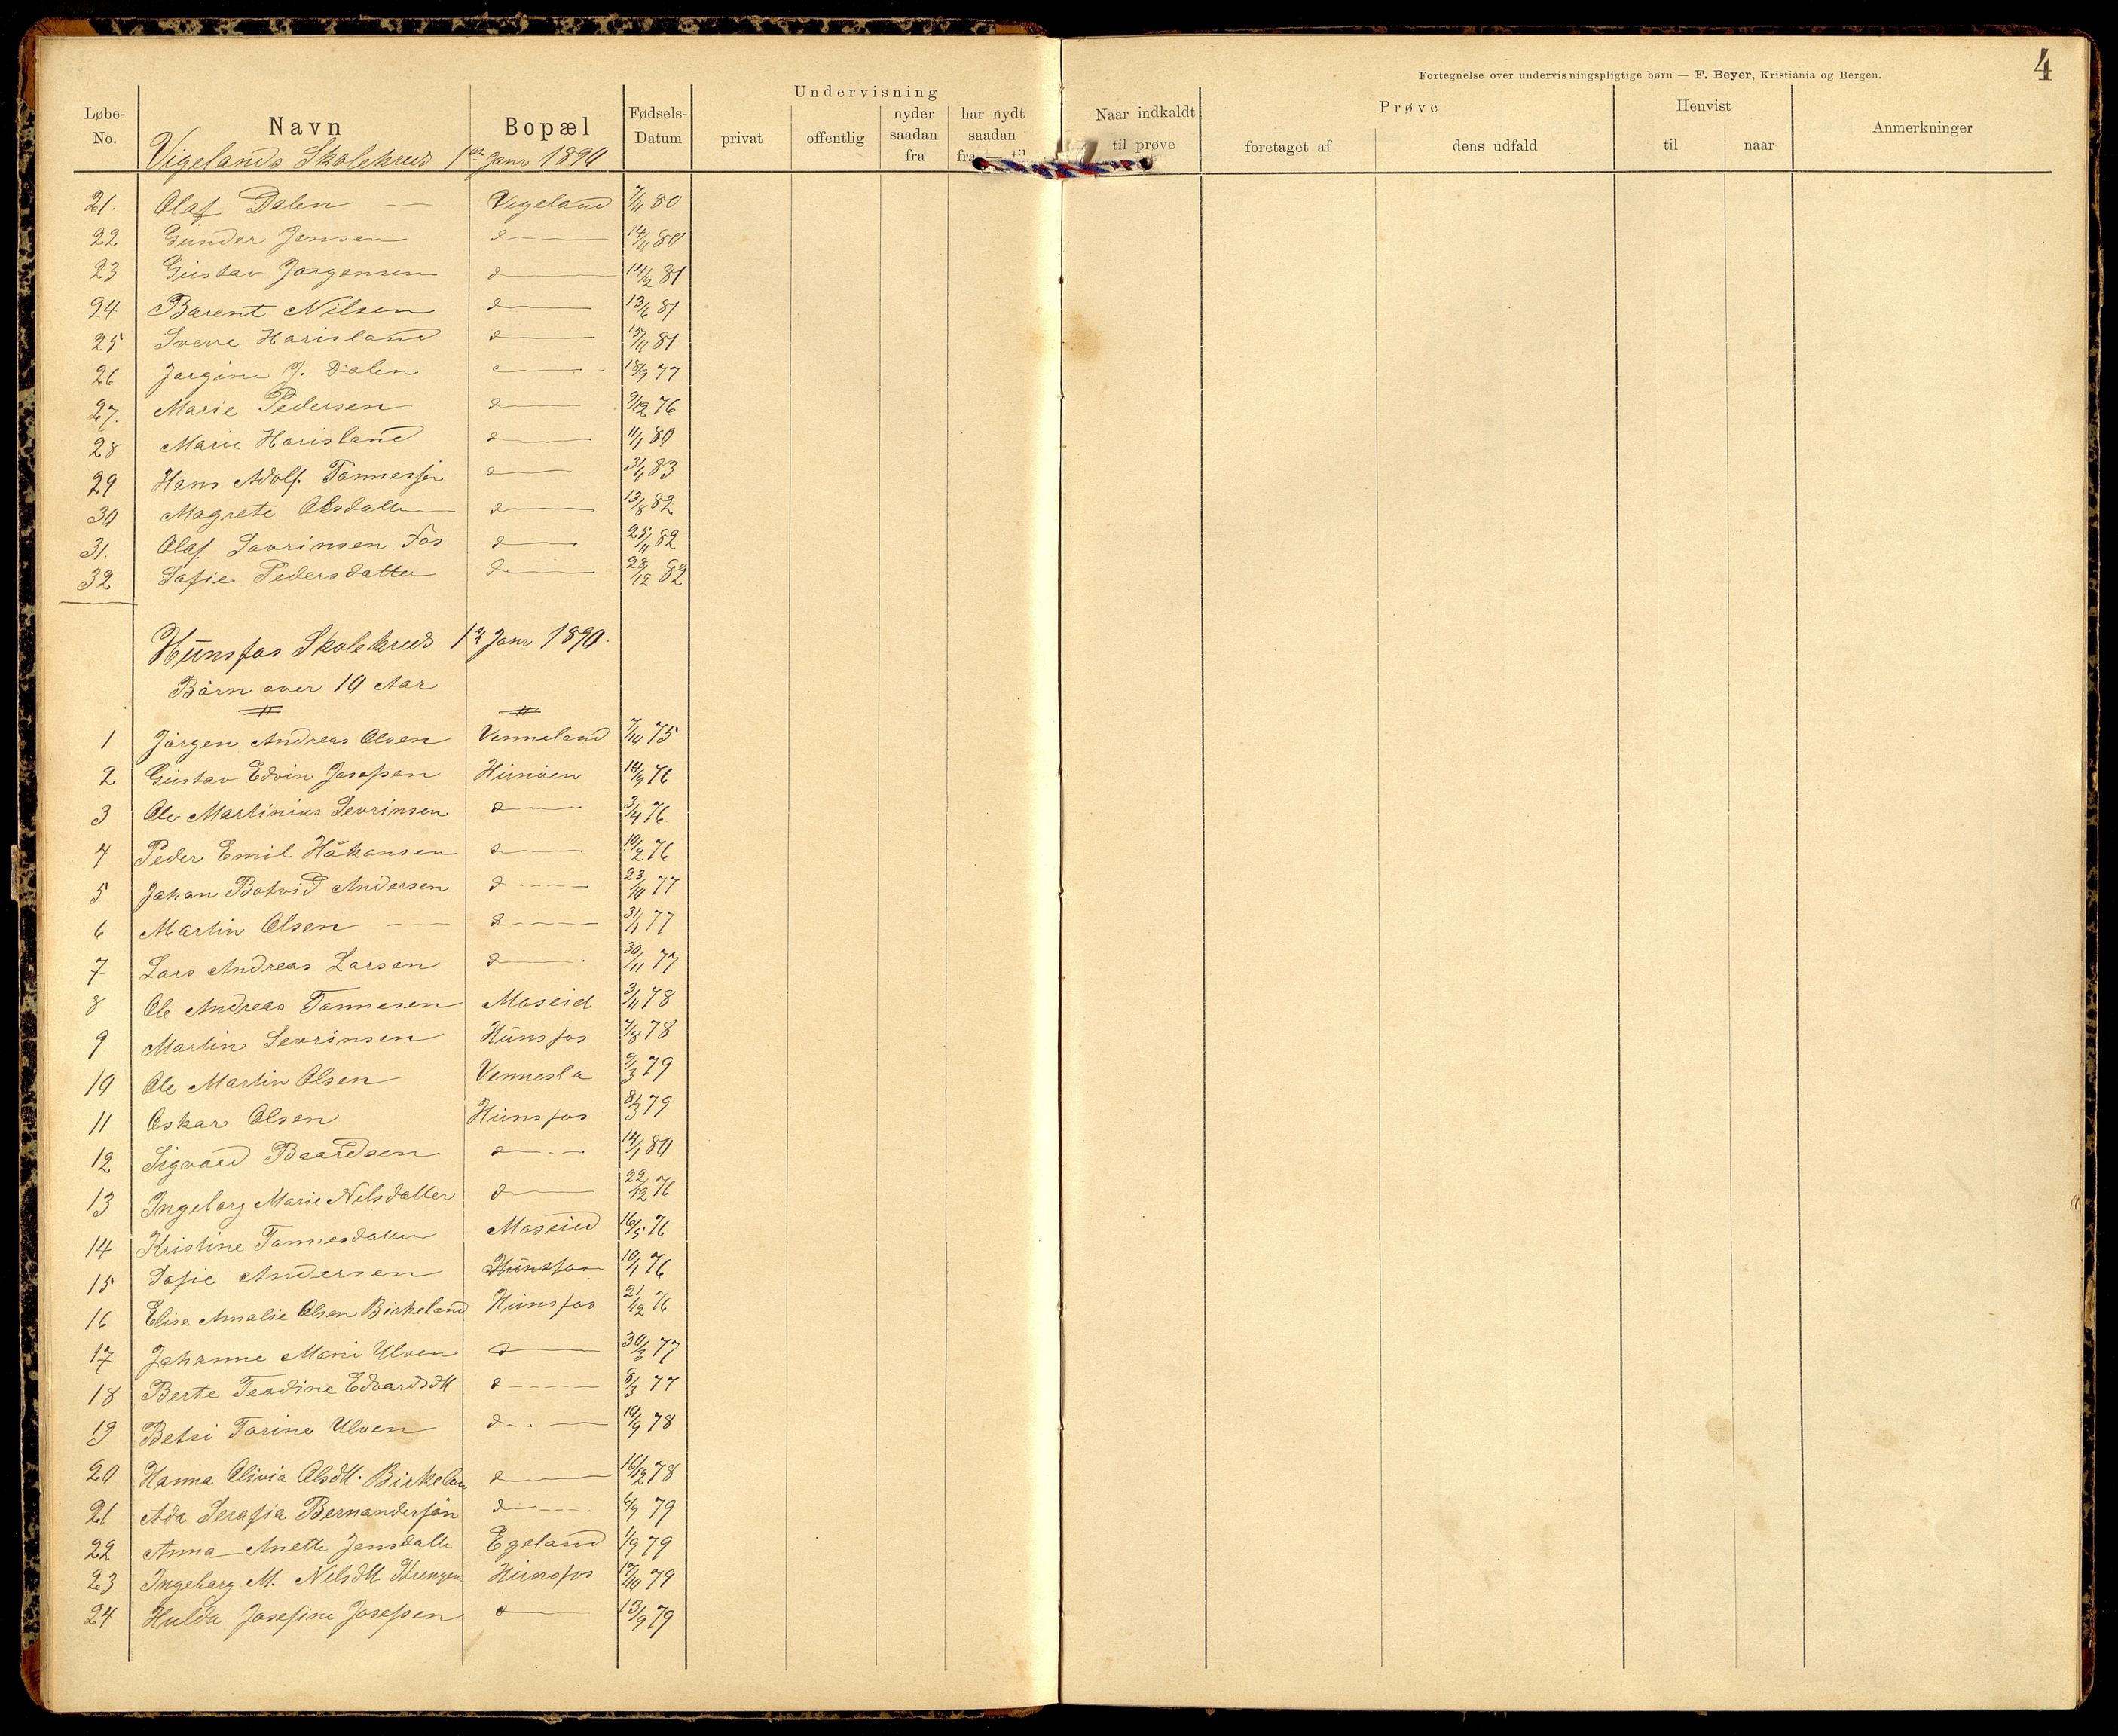 4
Fortegnelse over undervisningspligtige børn — F. Beyer, Kristiania og Bergen.
Løbe-No. Navn Bopæl Fødsels-Datum Undervisning privat offentlig nyder saadan fra har nydt saadan fra til Naar indkaldt til prøve Prøve foretaget af dens udfald Henvist til naar Anmerkninger
Vigelands Skolekreds 1ste Janr 1890
21. Olaf Dalen — — Vigeland 7/11 80
22 Gunder Jensen d — 14/11 80
23 Gustav Jørgensen d — 14/2 81
24 Barent Nilsen d — 13/6 81
25 Sverre Horisland d — 15/11 81
26 Jørgine J. Dalen — 18/9 77
27. Marie Pedersen d — 9/12 76
28 Marie Horisland d — 11/1 80
29 Hans Adolf. Tønnesjen d — 31/1 83
30 Magrete Olsdatter d — 13/8 82
31. Olaf Sørinsen Fos d — 25/11 82
32 Sofie Pedersdatter d — 28/12 82
Hunsfos Skolekreds 1ste Janr 1890.
Børn over 10 Aar
1 Jørgen Andreas Olsen Venneland 7/10 75
2 Gustav Edvin Josefsen Hunøen 14/9 76
3 Ole Martinius Sevrinsen d — 3/4 76
4 Peder Emil Håkonsen d — 10/2 76
5 Johan Botvid Andersen d — 23/10 77
6 Martin Olsen — d — 31/1 77
7 Lars Andreas Larsen d — 30/11 77
8 Ole Andreas Tønnesen Moseid 3/11 78
9 Martin Sevrinsen Hunsfos 7/8 78
10 Ole Martin Olsen Vennesla 9/3 79
11 Oskar Olsen Hunsfos 8/3 79
12 Sigvard Baardsen d — 14/1 80
13 Ingeborg Marie Nilsdatter d — 22/12 76
14 Kristine Tønnesdatter Moseid 16/5 76
15 Sofie Andersen Hunsfos 10/1 76
16 Elise Amalie Olsen Birkeland Hunsfos 21/12 76
17 Johanne Marie Ulven d — 30/3 77
18 Berte Teodine Edvardsdtt d — 8/3 77
19 Betsi Torine Ulven d — 10/9 78
20 Hanna Olivia Olsdtt. Birkelan d — 16/12 78
21 Ada Serafia Bernandersjön d — 6/9 79
22 Anna Anette Jensdatte Egeland 1/9 79
23 Ingeborg M. Nilsdtt Hunsfos 17/10 79
24 Hulda Josefine Josefsen d — 13/9 79